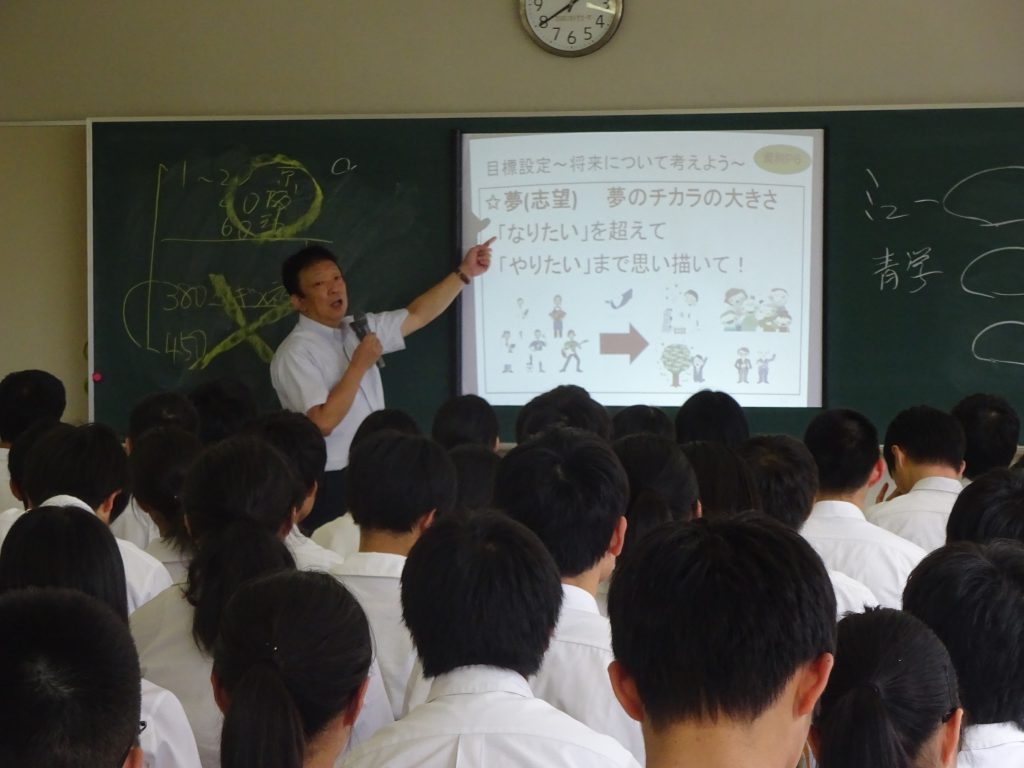 9
8
7
6
5
4
3
1～2
380
450
目標設定～将来について考えよう～
☆夢(志望)　夢のチカラの大きさ
「なりたい」を超えて
「やりたい」まで思い描いて！
青学